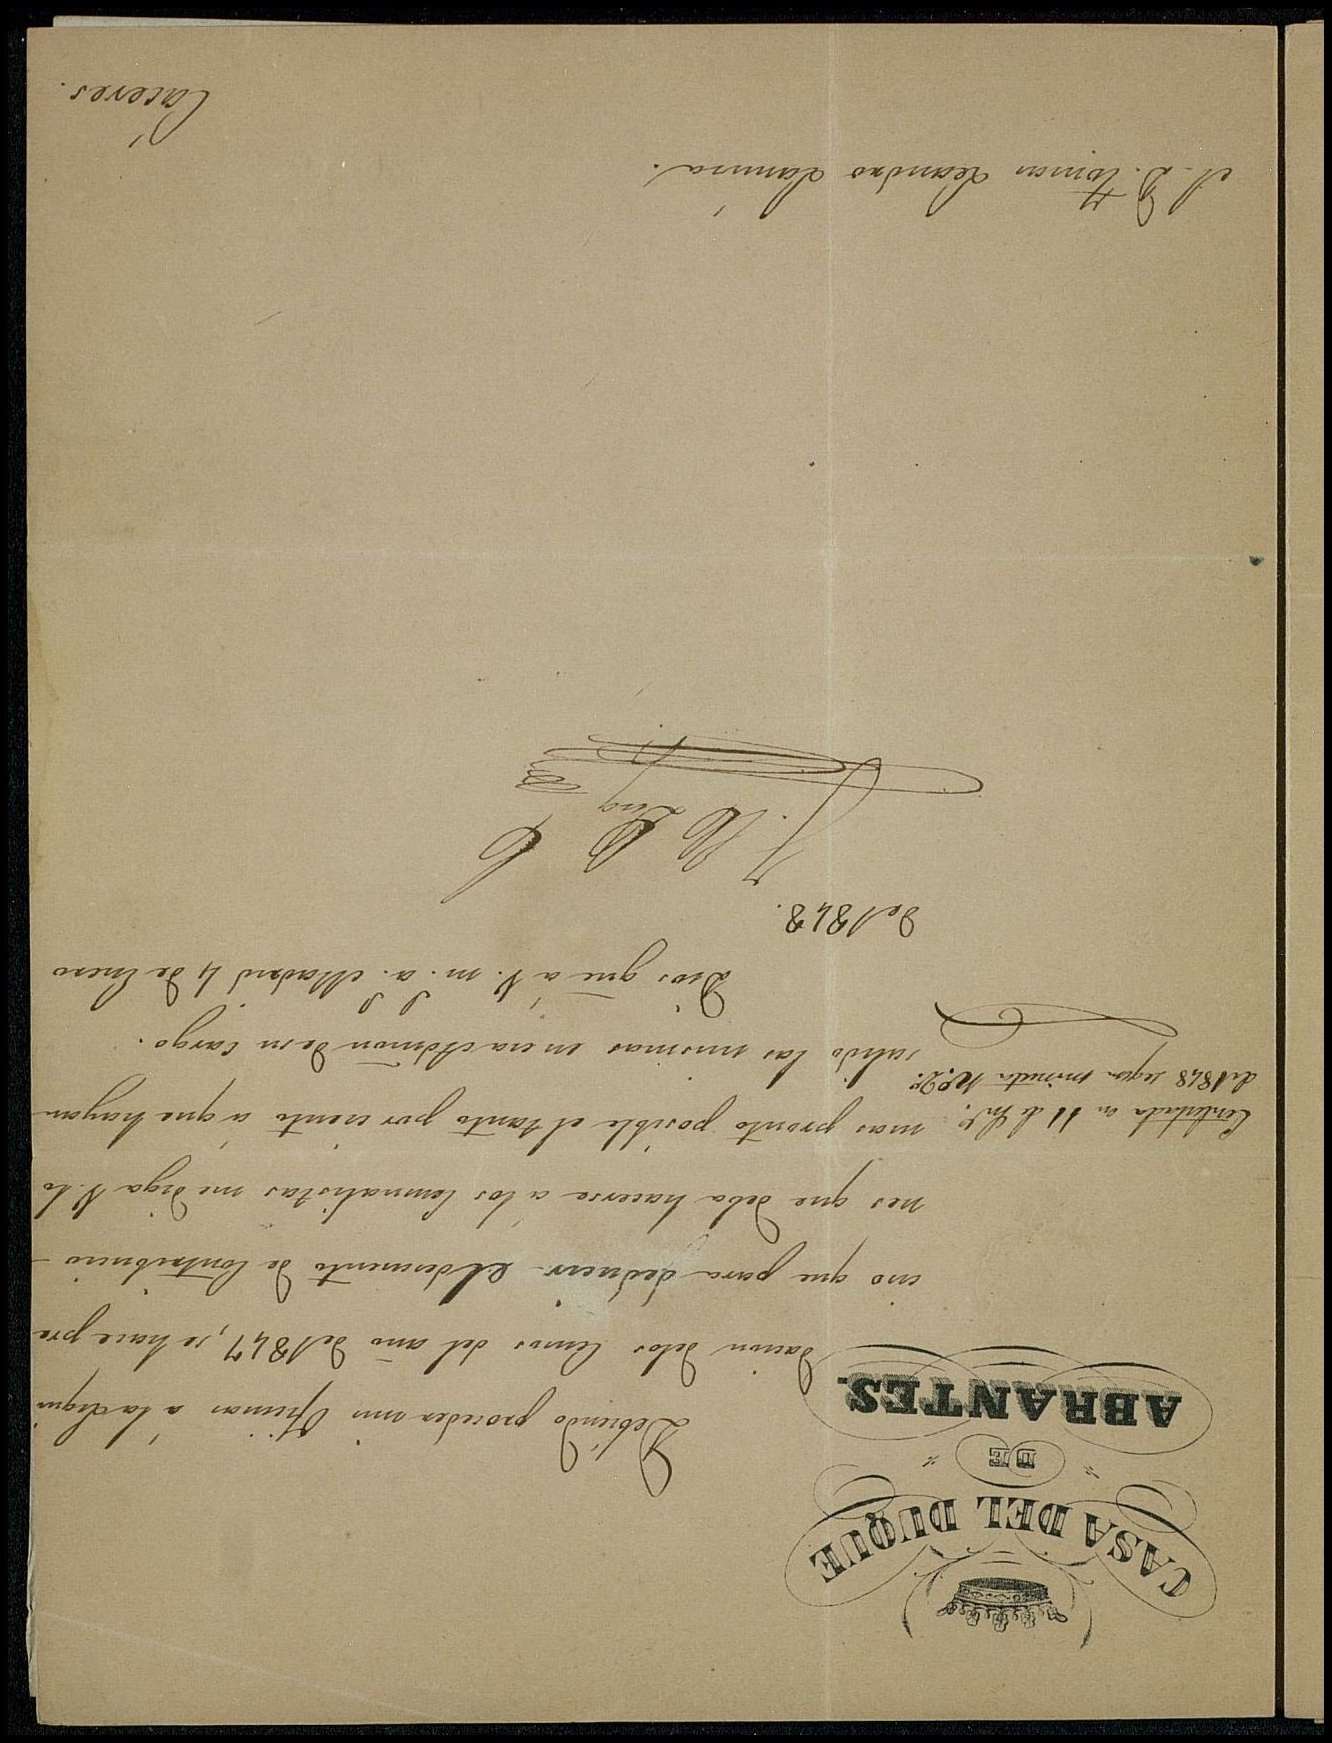 CASA DEL DUQUE
DE
ABRANTES.
Debiendo proceder mis Oficinas á la liqui
dacion delos Censos del año de 1847, se hace pre
ciso que para deducir el descuento de Contribucio-
nes que deba hacerse a los Censualistas me diga V. lo
mas pronto posible el tanto por ciento á que hayan
salido las mismas en esa Admon de su cargo.
Dios gue á V. m. a. Madrid 4 de Enero
de 1848.
Contestada en 11 de En.º
de 1848 segun minuta N.º 2.º
S. D. Tomas Leandro
Caceres.